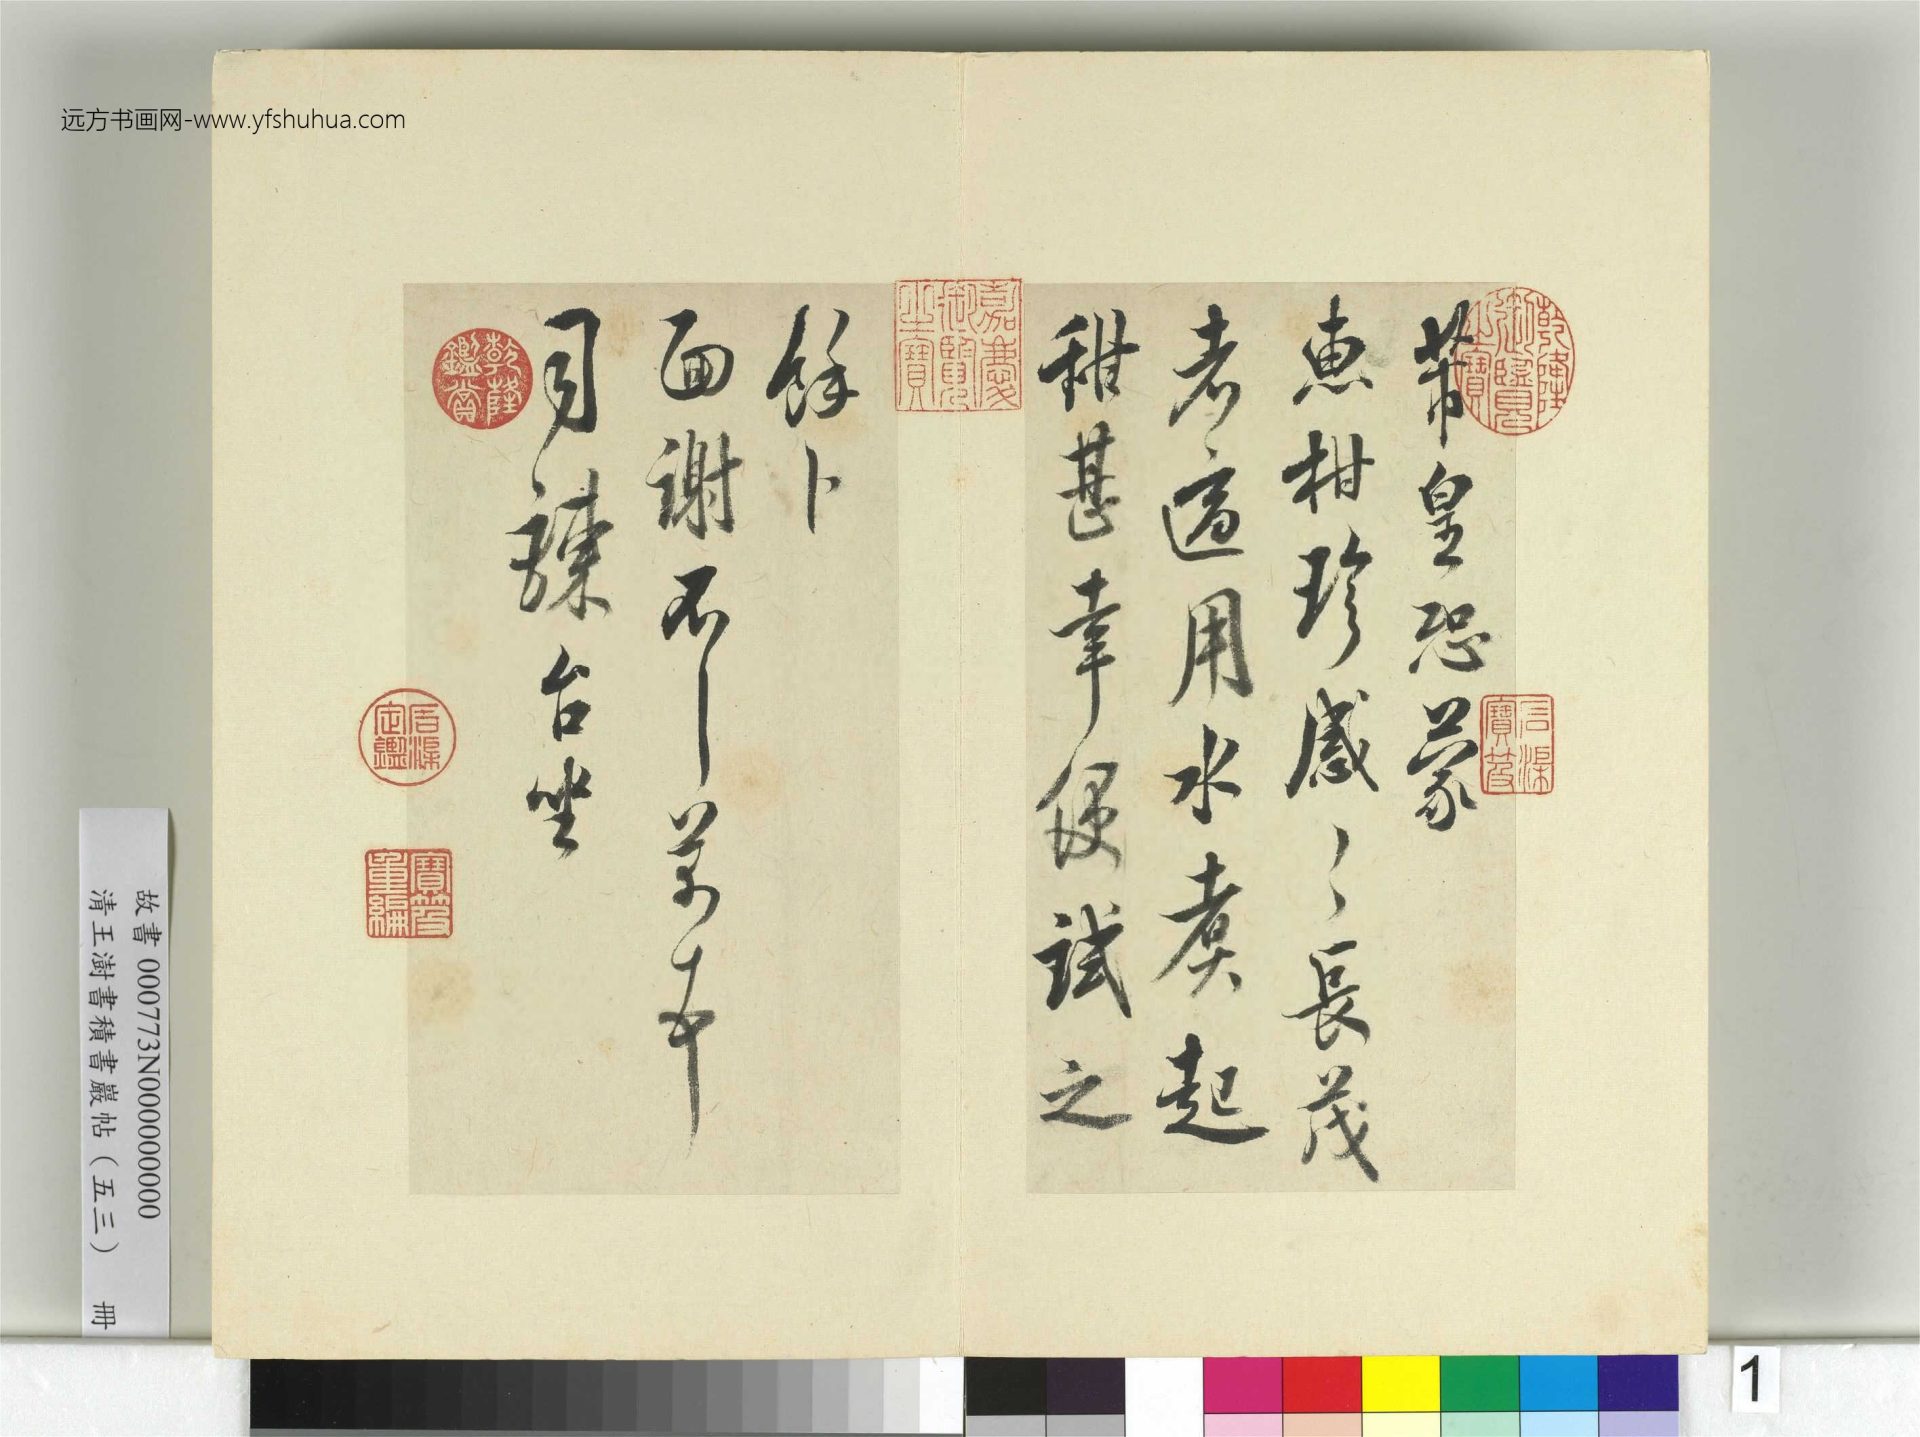 远方书画网-www.yfshuhua.com
芾皇恐蒙
惠柑珍感〻長茂
者適用水煮起
稱甚幸便試之
餘卜
面謝不一芾頓首
司諫台坐
乾隆御覽之寶
石渠寶笈
嘉慶御覽之寶
乾隆鑑賞
石渠定鑑
寶笈重編
故書 000773N000000000
清王澍書積書巖帖（五三） 冊
1